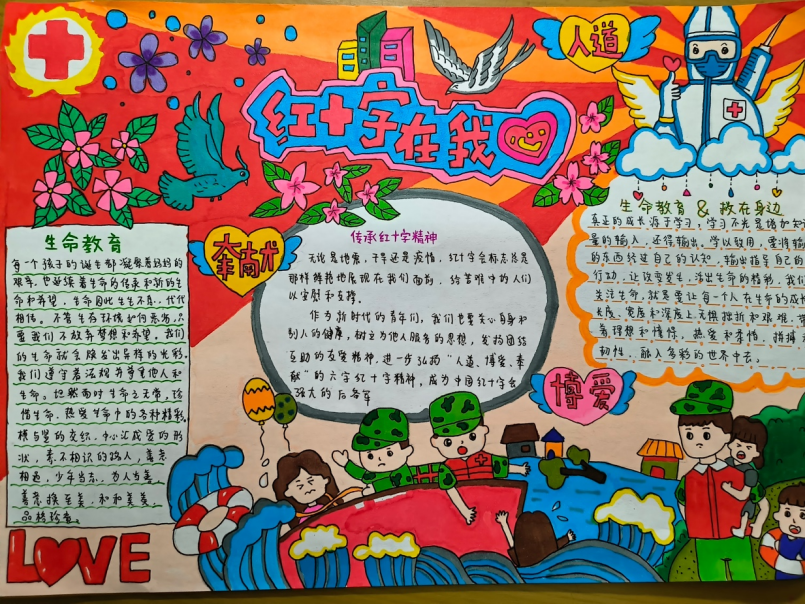 人道
红十字在我心
生命教育
每一个孩子的诞生都凝聚着妈妈的
艰辛，也延续着生命的传承和新的生
命和希望，生命因此生生不息，代代
相传，不管生存环境如何恶劣，只
要我们不放弃梦想和希望，我们
的生命就会焕发出异样的光彩。
我们遵守着法规并尊重他人和
生命。坦然面对生命之无常，珍
惜生命，热爱生命中的各种精彩，
横与竖的交织，中心汇成爱的形
状，素不相识的路人，善意
相遇，少年当志，为人当善
善意换至美，和和美美
品格珍贵
LOVE
奉献
传承红十字精神
无论是地震，干旱还是疫情，红十字会标志总是
那样鲜艳地展现在我们面前，给苦难中的人们
以安慰和支撑。
作为新时代的青年们，我们也要关心自身和
别人的健康，树立为他人服务的思想，发扬团结
互助的友爱精神，进一步弘扬“人道、博爱、奉
献”的六字红十字精神，成为中国红十字会
强大的后备军
博爱
生命教育 & 救在身边
真正的成长源于学习，学习不光是增加知识
量的输入，还得输出，学以致用，要将输
的东西经过自己的认知，输出指导自己的
行动，让改变发生，活出生命的精彩，我们
关注生命，就是要让每一个人在生命的成
长度、宽度和深度上无惧挫折和艰难，带
着理想和憧憬，热爱和柔情，拼搏
韧性，融入多彩的世界中去。